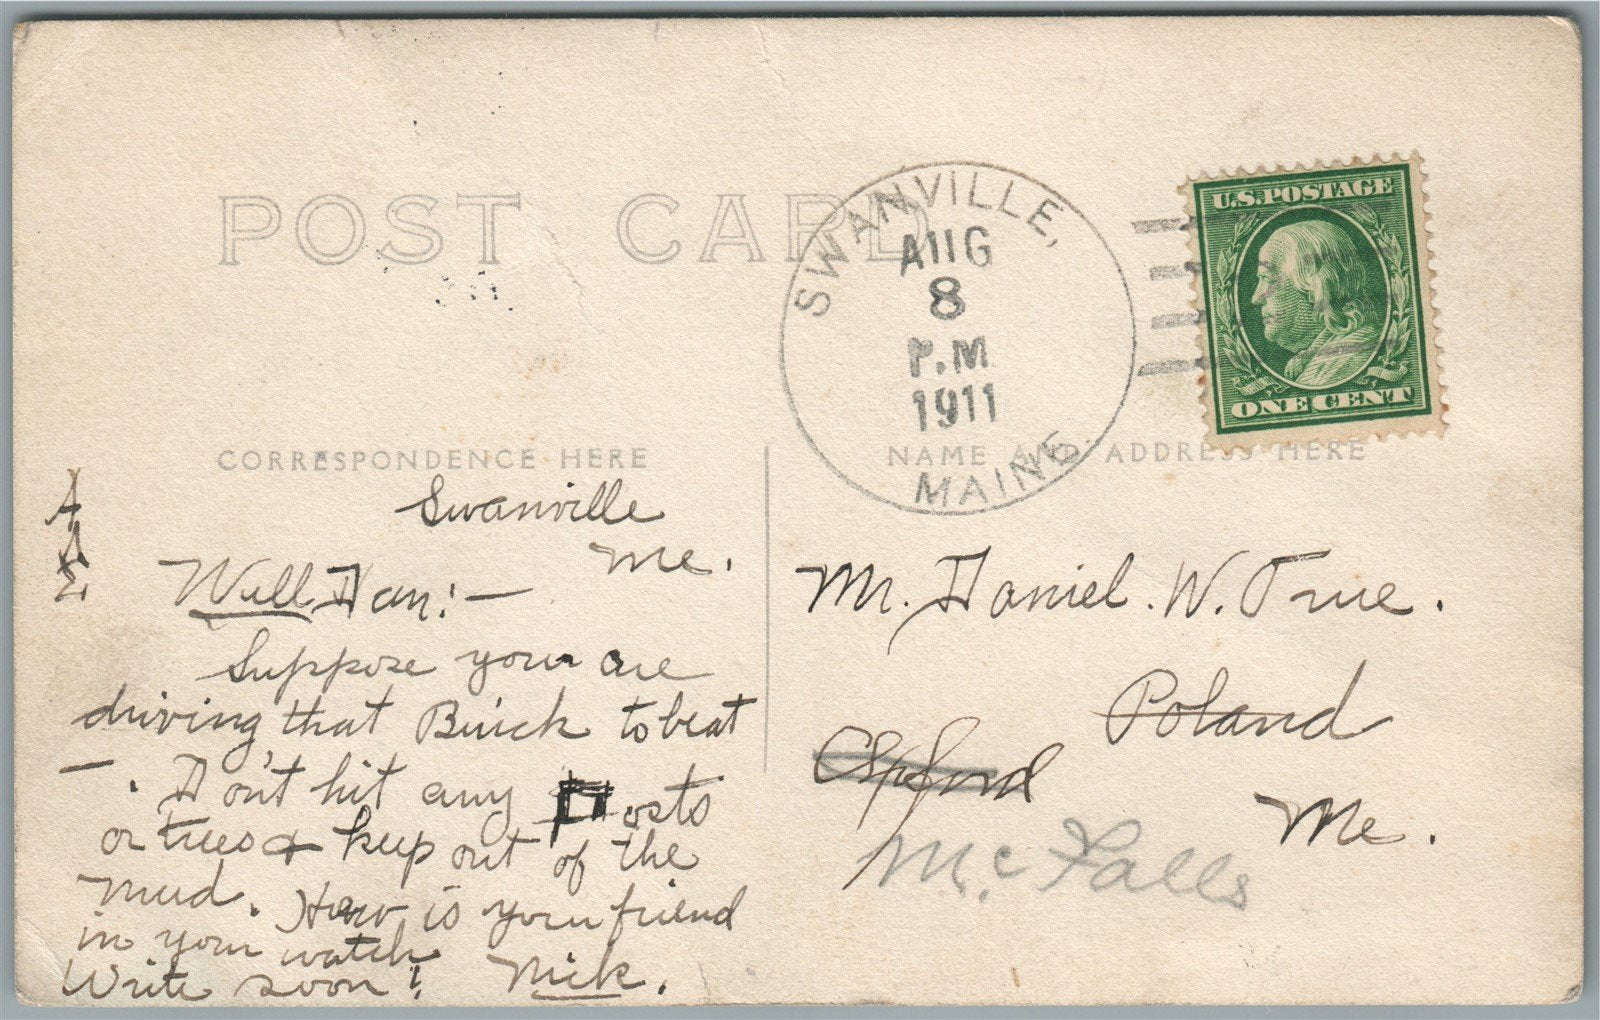 POST CARD
SWANVILLE,
AUG
8
P.M
1911
MAINE
U.S. POSTAGE
ONE CENT
CORRESPONDENCE HERE
NAME AND ADDRESS HERE
Swanville
Me.
Well Dan:—
Suppose your are
driving that Buick to beat
—. Don't hit any Posts
or trees & keep out of the
mud. How is your friend
in your watch
Write soon! Nick.
Mr. Daniel. W. True.
Poland
Oxford
Me.
Mc Falls